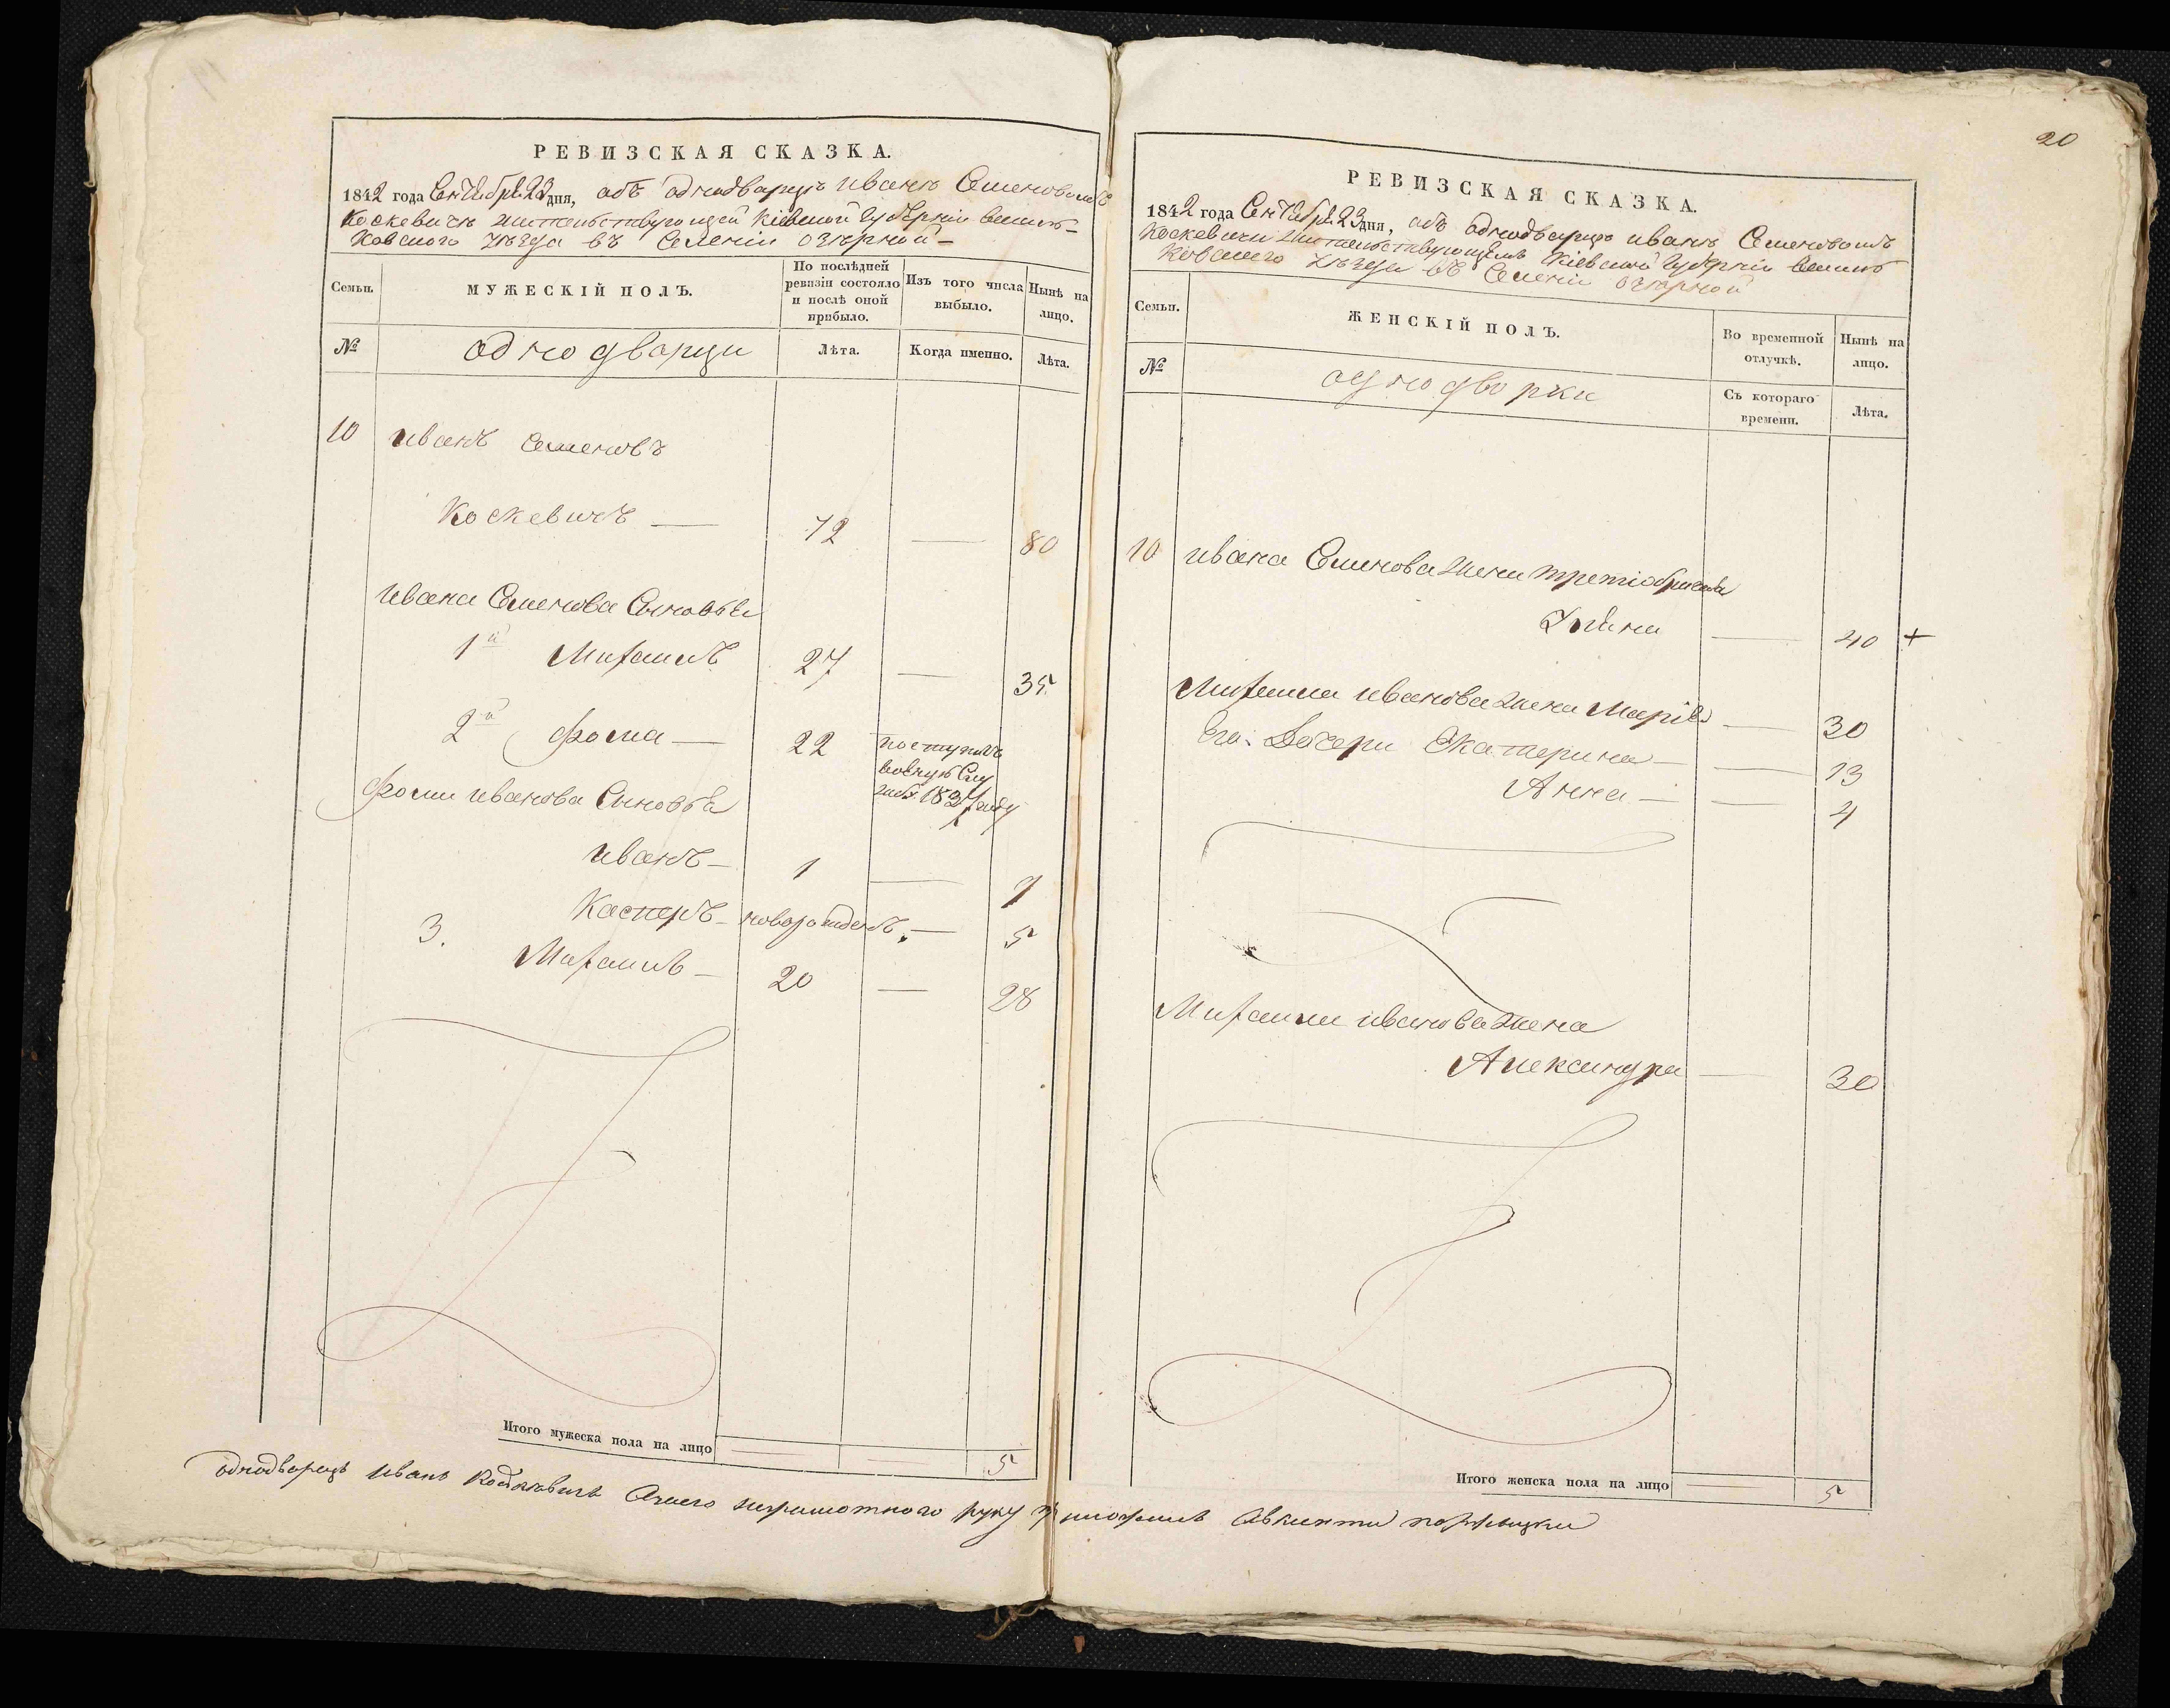 РЕВИЗСКАЯ СКАЗКА.
1842 года Сентября 23 дня, объ однодворцѣ Иванѣ Семеновомъ
Коскевичѣ жительствующей Кіевской Губерніи
уѣзда въ Селеніи Озѣрной
Семьи.
МУЖЕСКІЙ ПОЛЪ.
По послѣдней ревизіи состояло и послѣ оной прибыло.
Изъ того числа выбыло.
Нынѣ на лицо.
№
однодворци
Лѣта.
Когда именно.
Лѣта.
10 Иванъ Семеновъ
Коскевичъ — 72 — 80
Ивана Семенова Сыновья
1й Михаилъ 27 — 35
2й Фома — 22 поступилъ
Слу
1837 году
Фоми Иванова Сыновья
Иванъ — 1 — 9
Касперъ — новорожденъ. — 5
3. Михаилъ — 20 — 28
Итого мужеска пола на лицо — — 5
20
РЕВИЗСКАЯ СКАЗКА.
1842 года Сентября 23 дня, объ однодворцѣ Иванѣ Семеновомъ
Коскевичи жительствующемъ Кіевской Губерніи
уѣзда въ Селеніи Озѣрной
Семьи.
ЖЕНСКІЙ ПОЛЪ.
Во временной отлучкѣ.
Нынѣ на лицо.
№
однодворки
Съ котораго времени.
Лѣта.
10 Ивана Семенова жена
— 40 +
Михаила Иванова жена Марія — 30
Его Дочери Екатерина — — 13
Анна — — 4
Михаила Иванова жена
Александра — 30
Итого женска пола на лицо — 5
однодворецъ Иванъ неграмотного руку приложилъ